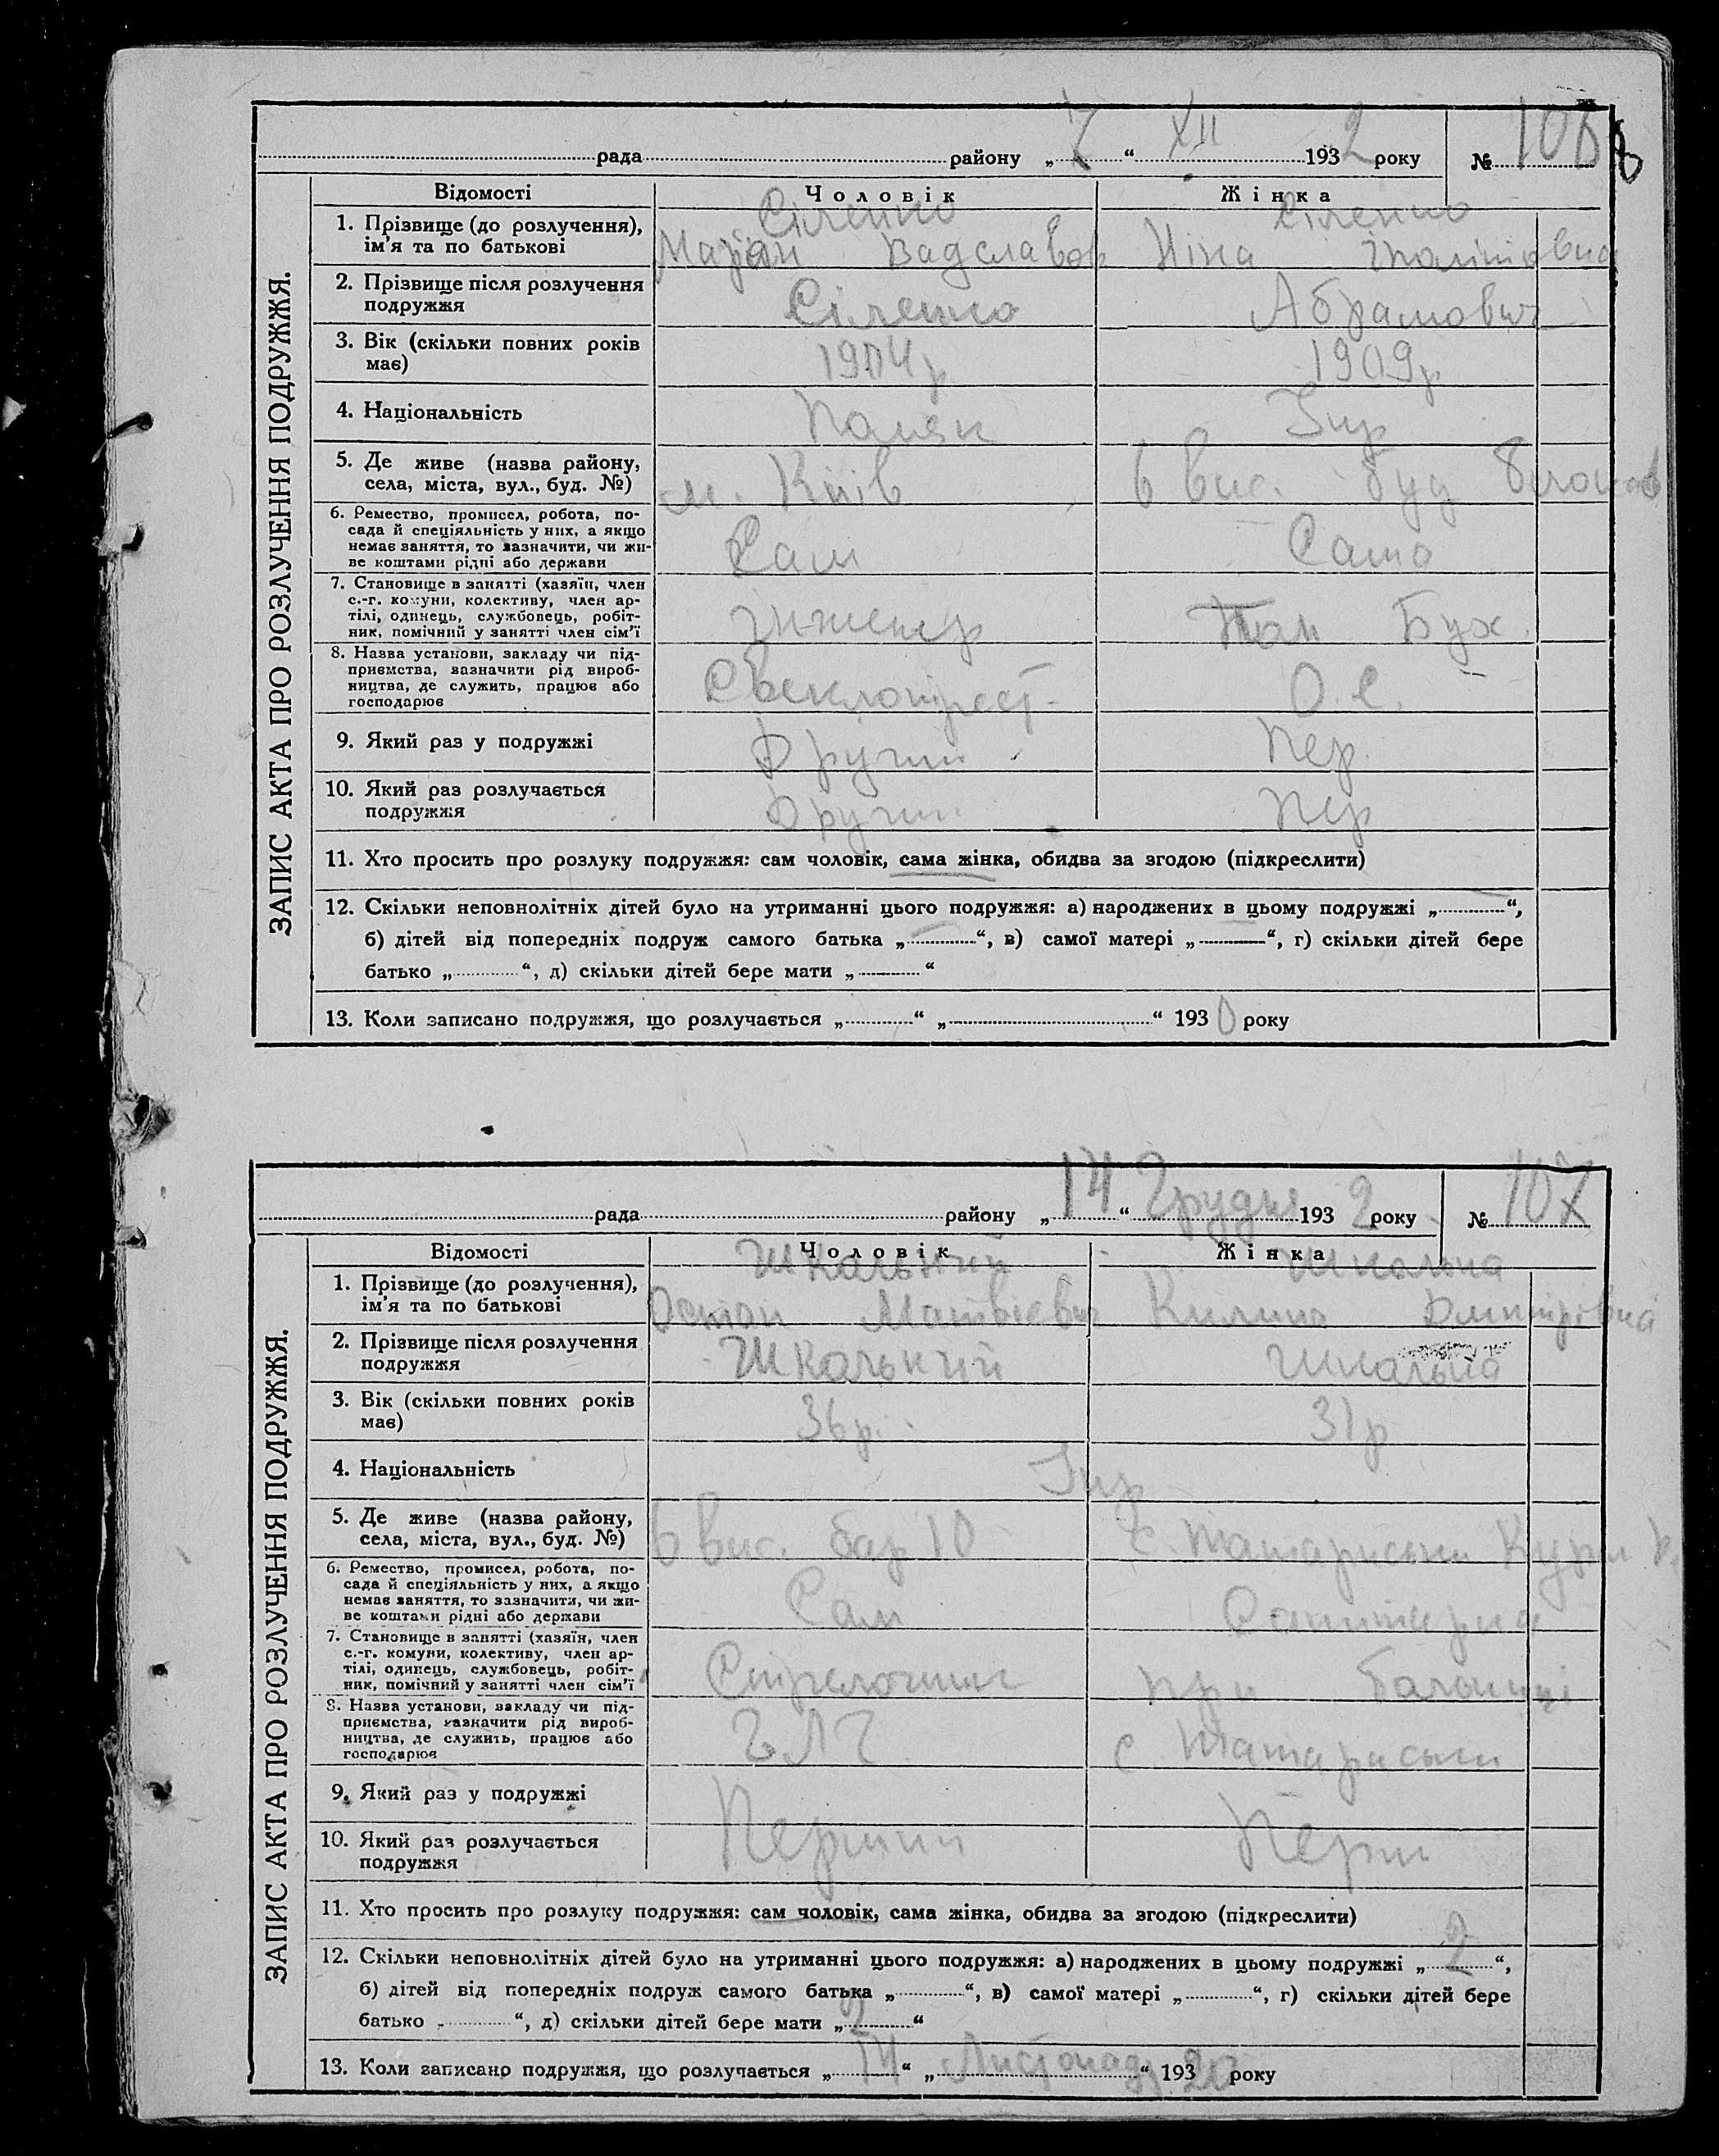 рада району „ 7 “ XII 1932 року № 106
8
ЗАПИС АКТА ПРО РОЗЛУЧЕННЯ ПОДРУЖЖЯ.
Відомості Чоловік Жінка
1. Прізвище (до розлучення), ім'я та по батькові
Сіленко Сіленко
Мар'ян Вадславов Ніна
2. Прізвище після розлучення подружжя
Сіленко Абрамович
3. Вік (скільки повних років має)
1904 р 1909 р
4. Національність
Поляк Укр
5. Де живе (назва району, села, міста, вул., буд. №)
м. Київ 6 вис. буд
6. Ремество, промисел, робота, по-
сада й спеціяльність у них, а якщо
немає заняття, то зазначити, чи жи-
ве коштами рідні або держави
Сам Сама
7. Становище в занятті (хазяїн, член
с.-г. комуни, колективу, член ар-
тілі, одинець, службовець, робіт-
ник, помічний у занятті член сім'ї
Інженер Пом Бух.
8. Назва установи, закладу чи під-
приємства, зазначити рід вироб-
ництва, де служить, працює або
господарює
О.С.
9. Який раз у подружжі
Другий Пер.
10. Який раз розлучається подружжя
Другий Пер
11. Хто просить про розлуку подружжя: сам чоловік, сама жінка, обидва за згодою (підкреслити)
12. Скільки неповнолітніх дітей було на утриманні цього подружжя: а) народжених в цьому подружжі „ “,
б) дітей від попередніх подруж самого батька „ “, в) самої матері „ “, г) скільки дітей бере
батько „ “, д) скільки дітей бере мати „ “
13. Коли записано подружжя, що розлучається „ “ „ “ 1930 року
рада району „ 14 “ Грудня 1932 року № 107
ЗАПИС АКТА ПРО РОЗЛУЧЕННЯ ПОДРУЖЖЯ.
Відомості Чоловік Жінка
1. Прізвище (до розлучення), ім'я та по батькові
Шкальний Школьна
Остап Матвієвич Килина Дмитрівна
2. Прізвище після розлучення подружжя
Шкальний Шкальна
3. Вік (скільки повних років має)
36 р. 31 р
4. Національність
Укр
5. Де живе (назва району, села, міста, вул., буд. №)
6 вис. бар 10 с.
6. Ремество, промисел, робота, по-
сада й спеціяльність у них, а якщо
немає заняття, то зазначити, чи жи-
ве коштами рідні або держави
Сам Санитарка
7. Становище в занятті (хазяїн, член
с.-г. комуни, колективу, член ар-
тілі, одинець, службовець, робіт-
ник, помічний у занятті член сім'ї
Стрелочник при больниці
8. Назва установи, закладу чи під-
приємства, зазначити рід вироб-
ництва, де служить, працює або
господарює
с.
9. Який раз у подружжі
10. Який раз розлучається подружжя
Перший Перш
11. Хто просить про розлуку подружжя: сам чоловік, сама жінка, обидва за згодою (підкреслити)
12. Скільки неповнолітніх дітей було на утриманні цього подружжя: а) народжених в цьому подружжі „ 2 “,
б) дітей від попередніх подруж самого батька „ “, в) самої матері „ “, г) скільки дітей бере
батько „ “, д) скільки дітей бере мати „ 2 “
13. Коли записано подружжя, що розлучається „ 14 “ „ Листопад “ 193 року